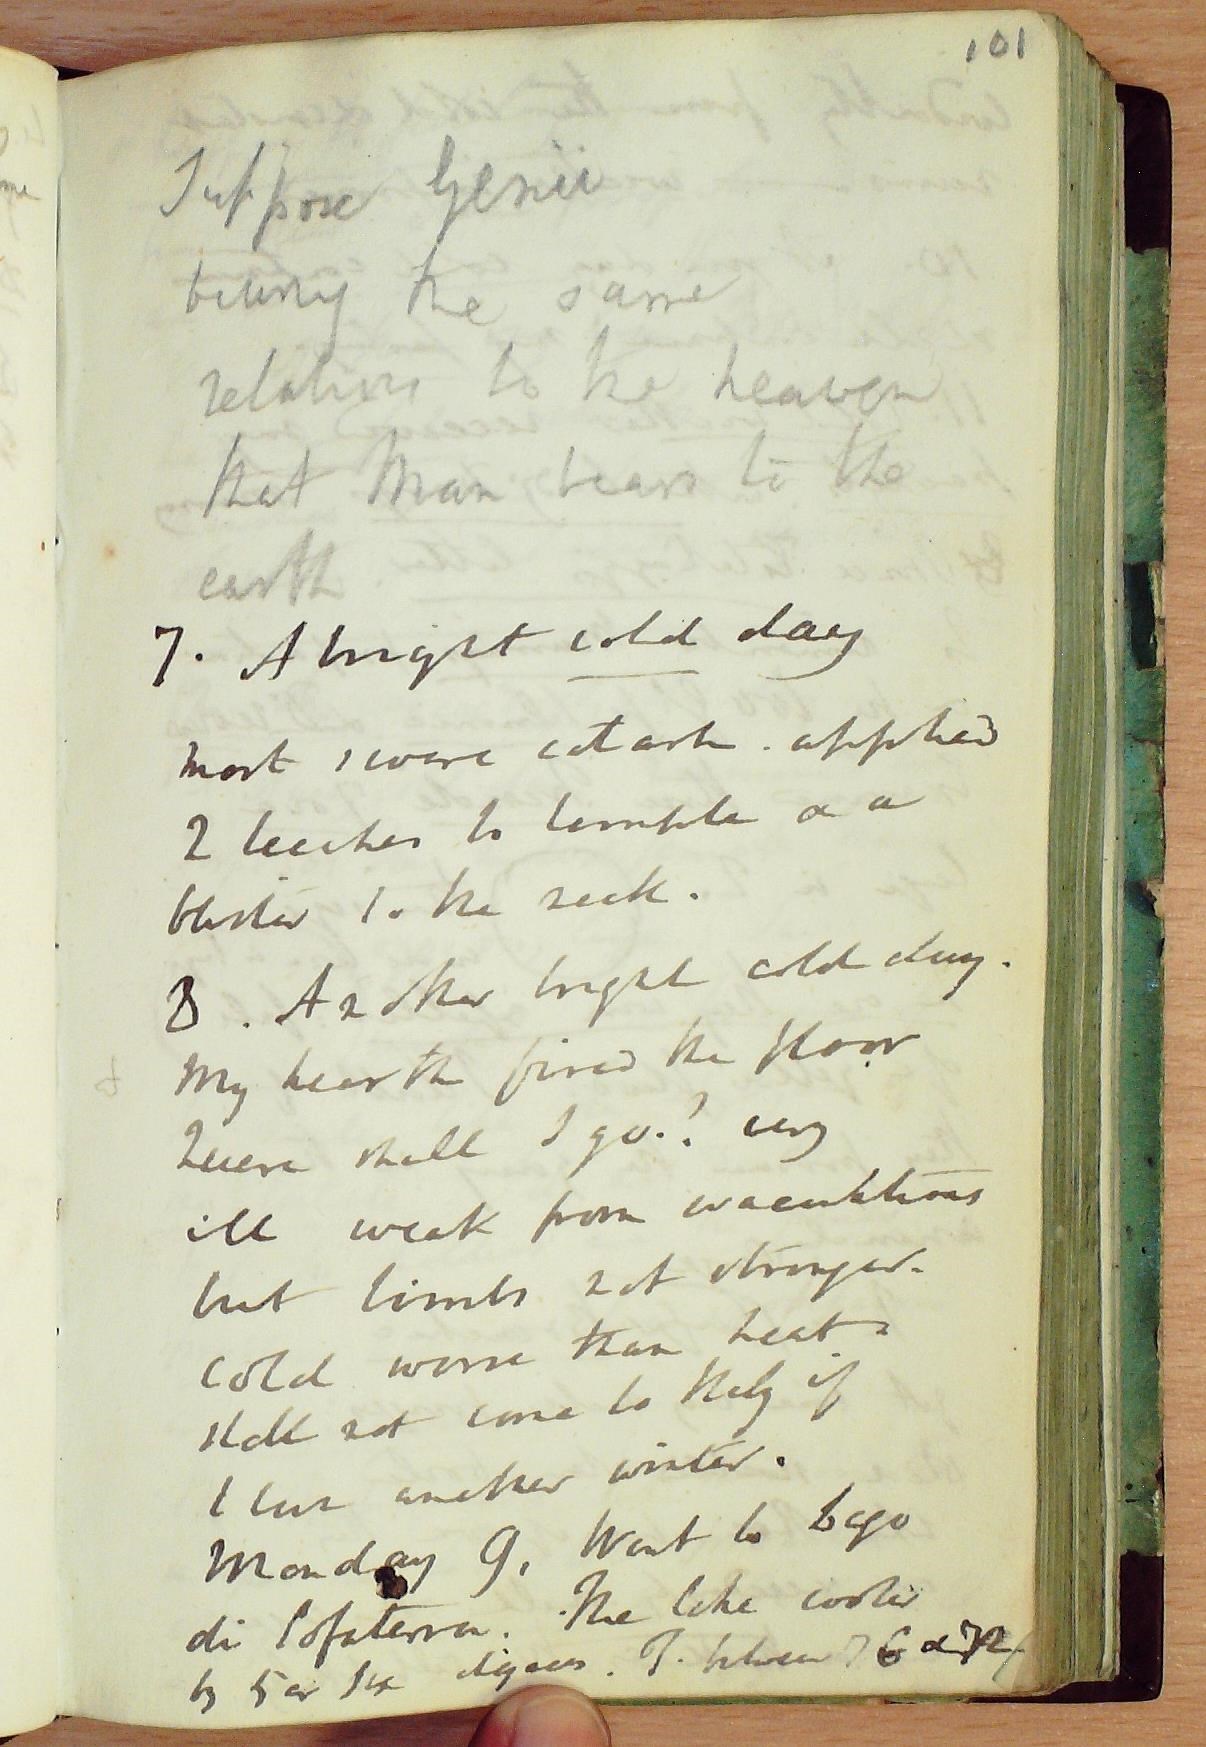 101
Suppose Genii
bearing the same
relations to the heaven
that Man bears to the
earth
7. A bright cold day
most severe catarrh. applied
2 leeches to temple & a
blister to the neck.
8. Another bright cold day.
My hearth fired the floor
where shall I go.? very
ill weak from evacuations
but limbs not stronger.
cold worse than heat
shall not come to Italy if
I live another winter.
Monday 9. Went to Lago
di Solfaterra. The lake cooler
by 5 or six degrees. T. between 76 &